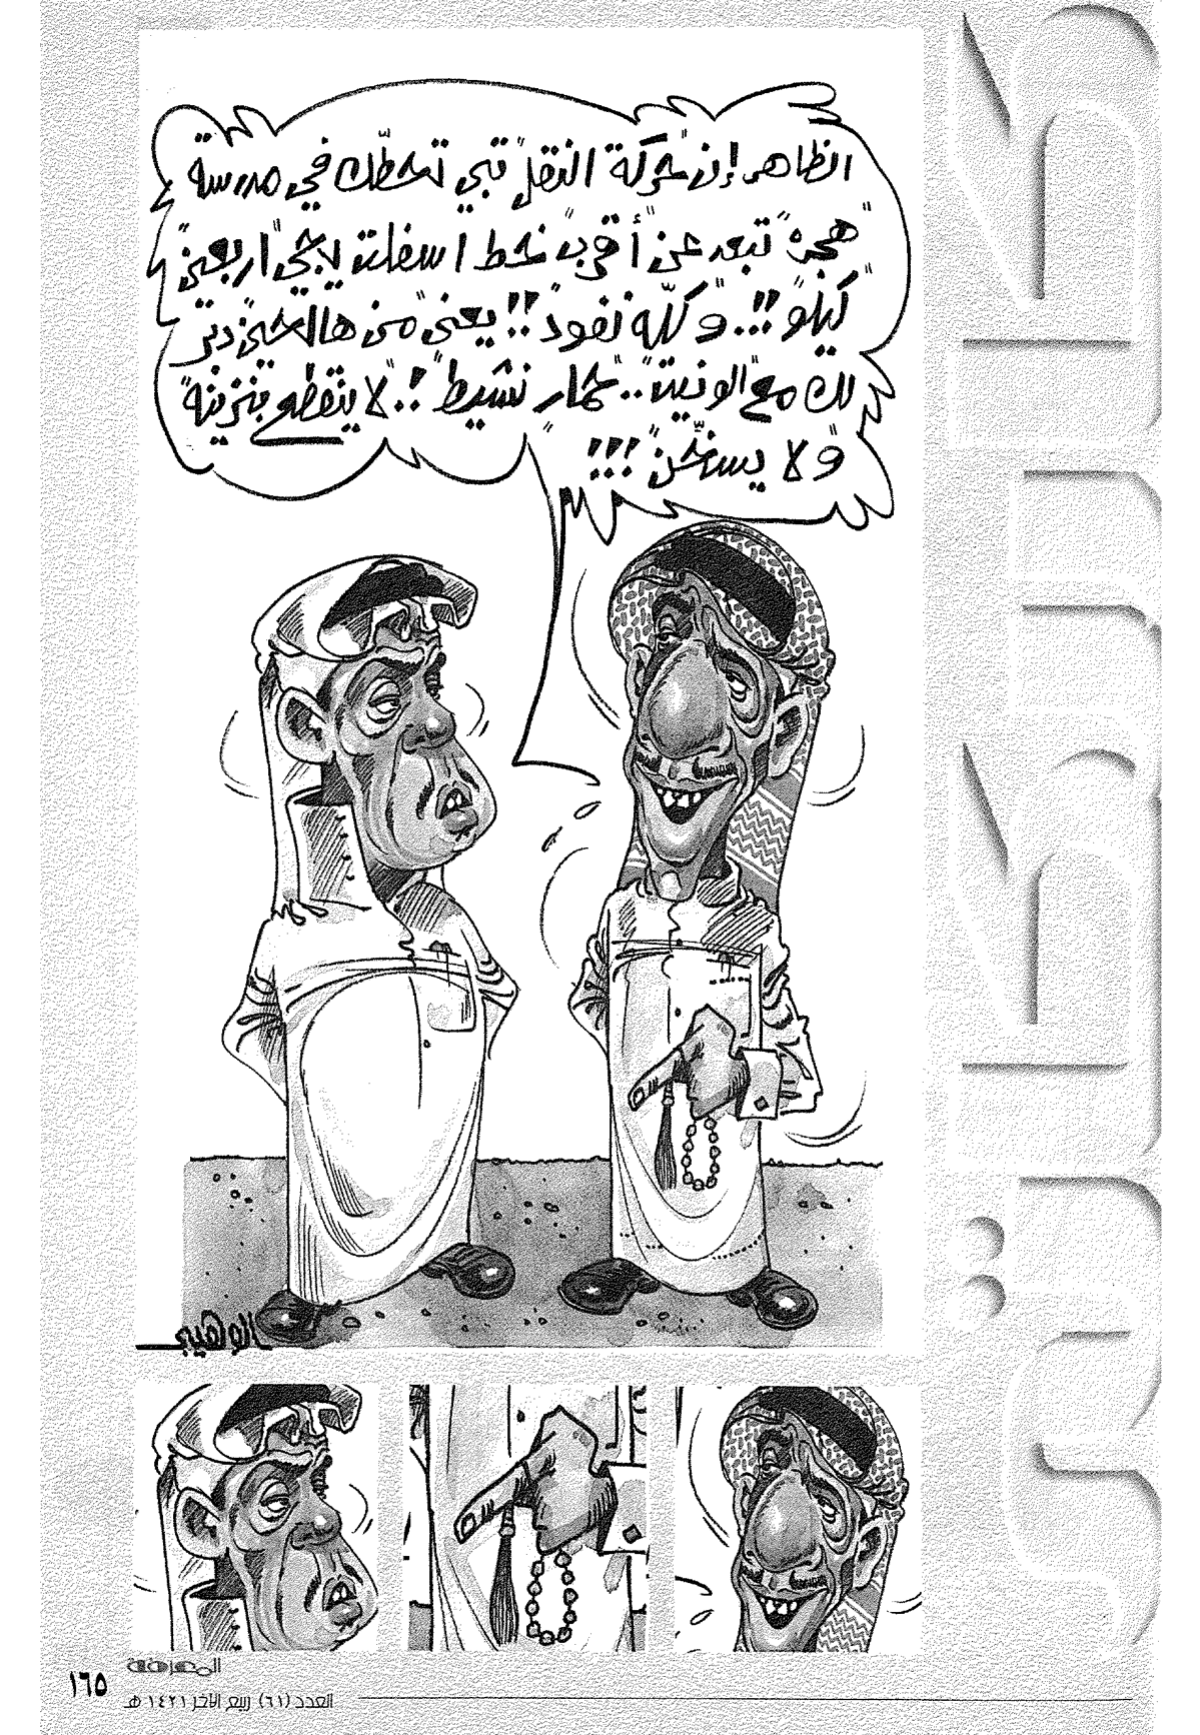 الظاهر إن حركة النقل تبي تحطّك في مدرسة
هجرة تبعد عن أقرب خط اسفلت يجي اربعين
كيلو!!.. وكلّه نفود!! يعني من هالحين دبّر
لك مع الونيت.. حمار نشيط!.. لا ينقطع بنزينه
ولا يسخّن!!!
الوهيبي
المعرفة
العدد (٦١) ربيع الآخر ١٤٢١ هـ
١٦٥